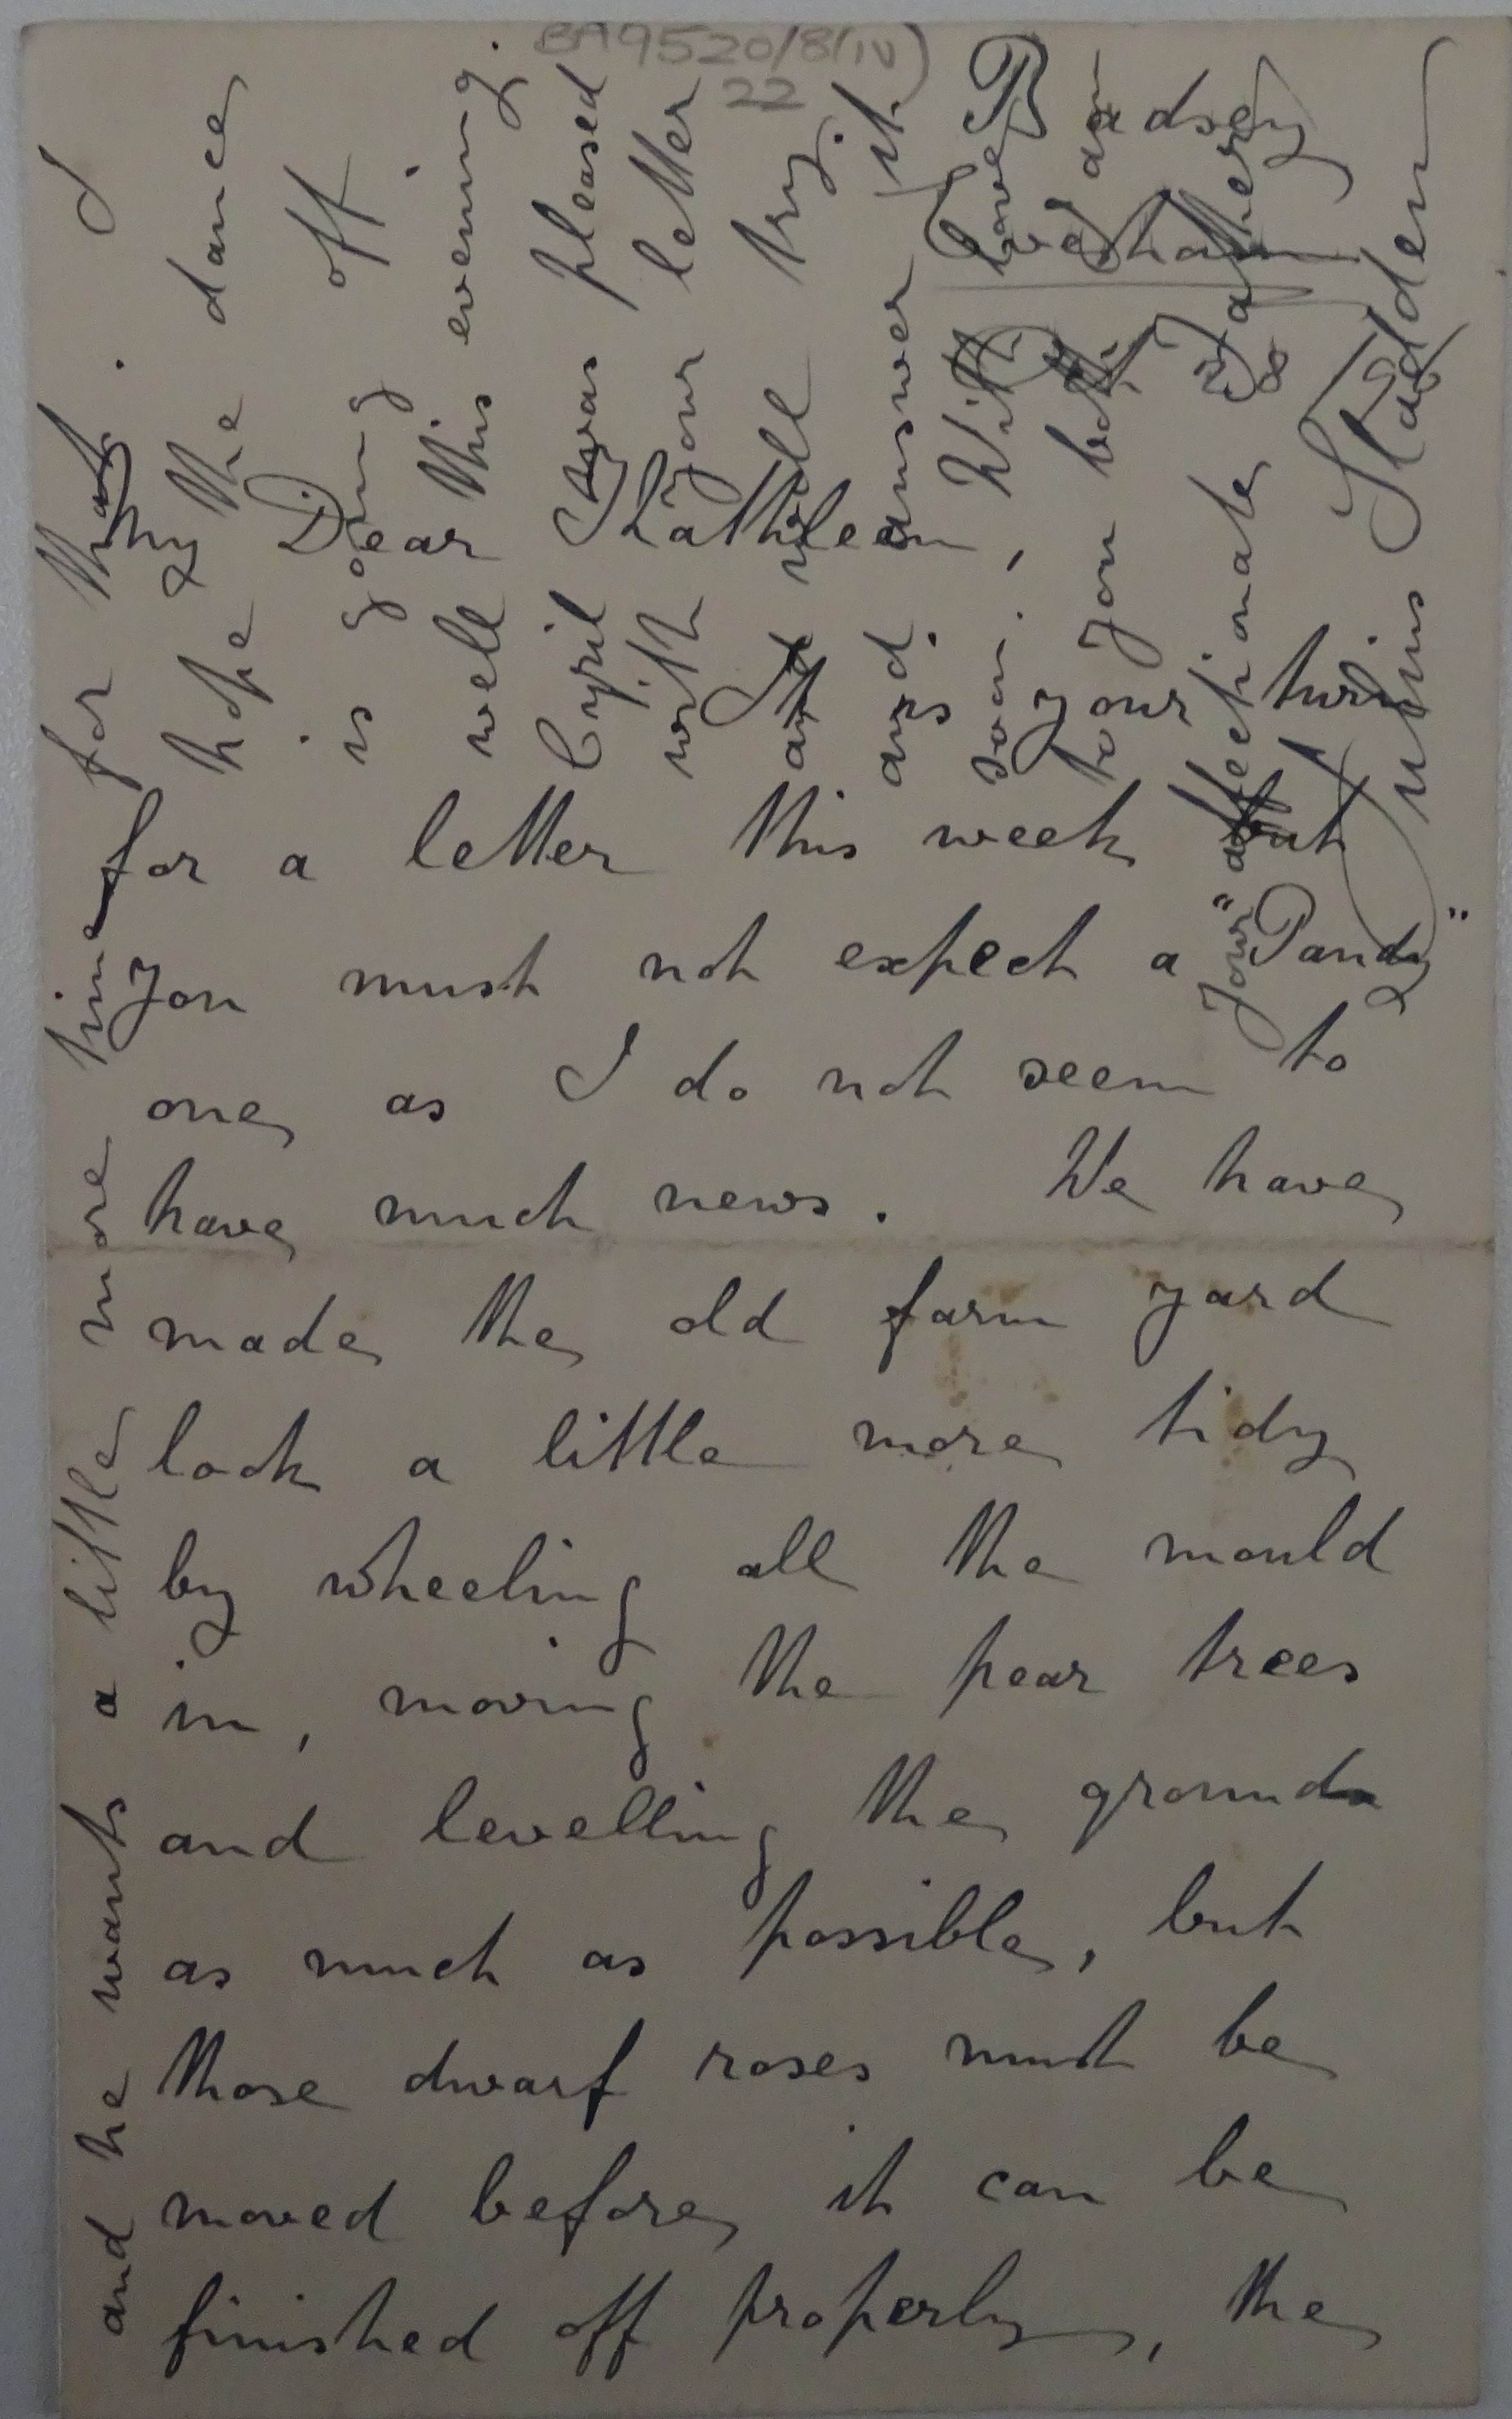 BA9520/8(iv)
22
Badsey
Evesham
My Dear Kathleen,
It is your turn
for a letter this week but
you must not expect a "Pandy"
one as I do not seem to
have much news. We have
made the old farm yard
look a little more tidy
by wheeling all the mould
in, moving the pear trees
and levelling the ground
as much as possible, but
those dwarf roses must be
moved before it can be
finished off properly, the
and he wants a little more time for that. I
hope the dance
is going off
well this evening.
Cyril was pleased
with your letter
and will try
and answer it
soon. With love
to you both I am
Your affectionate Father
Julius Sladden